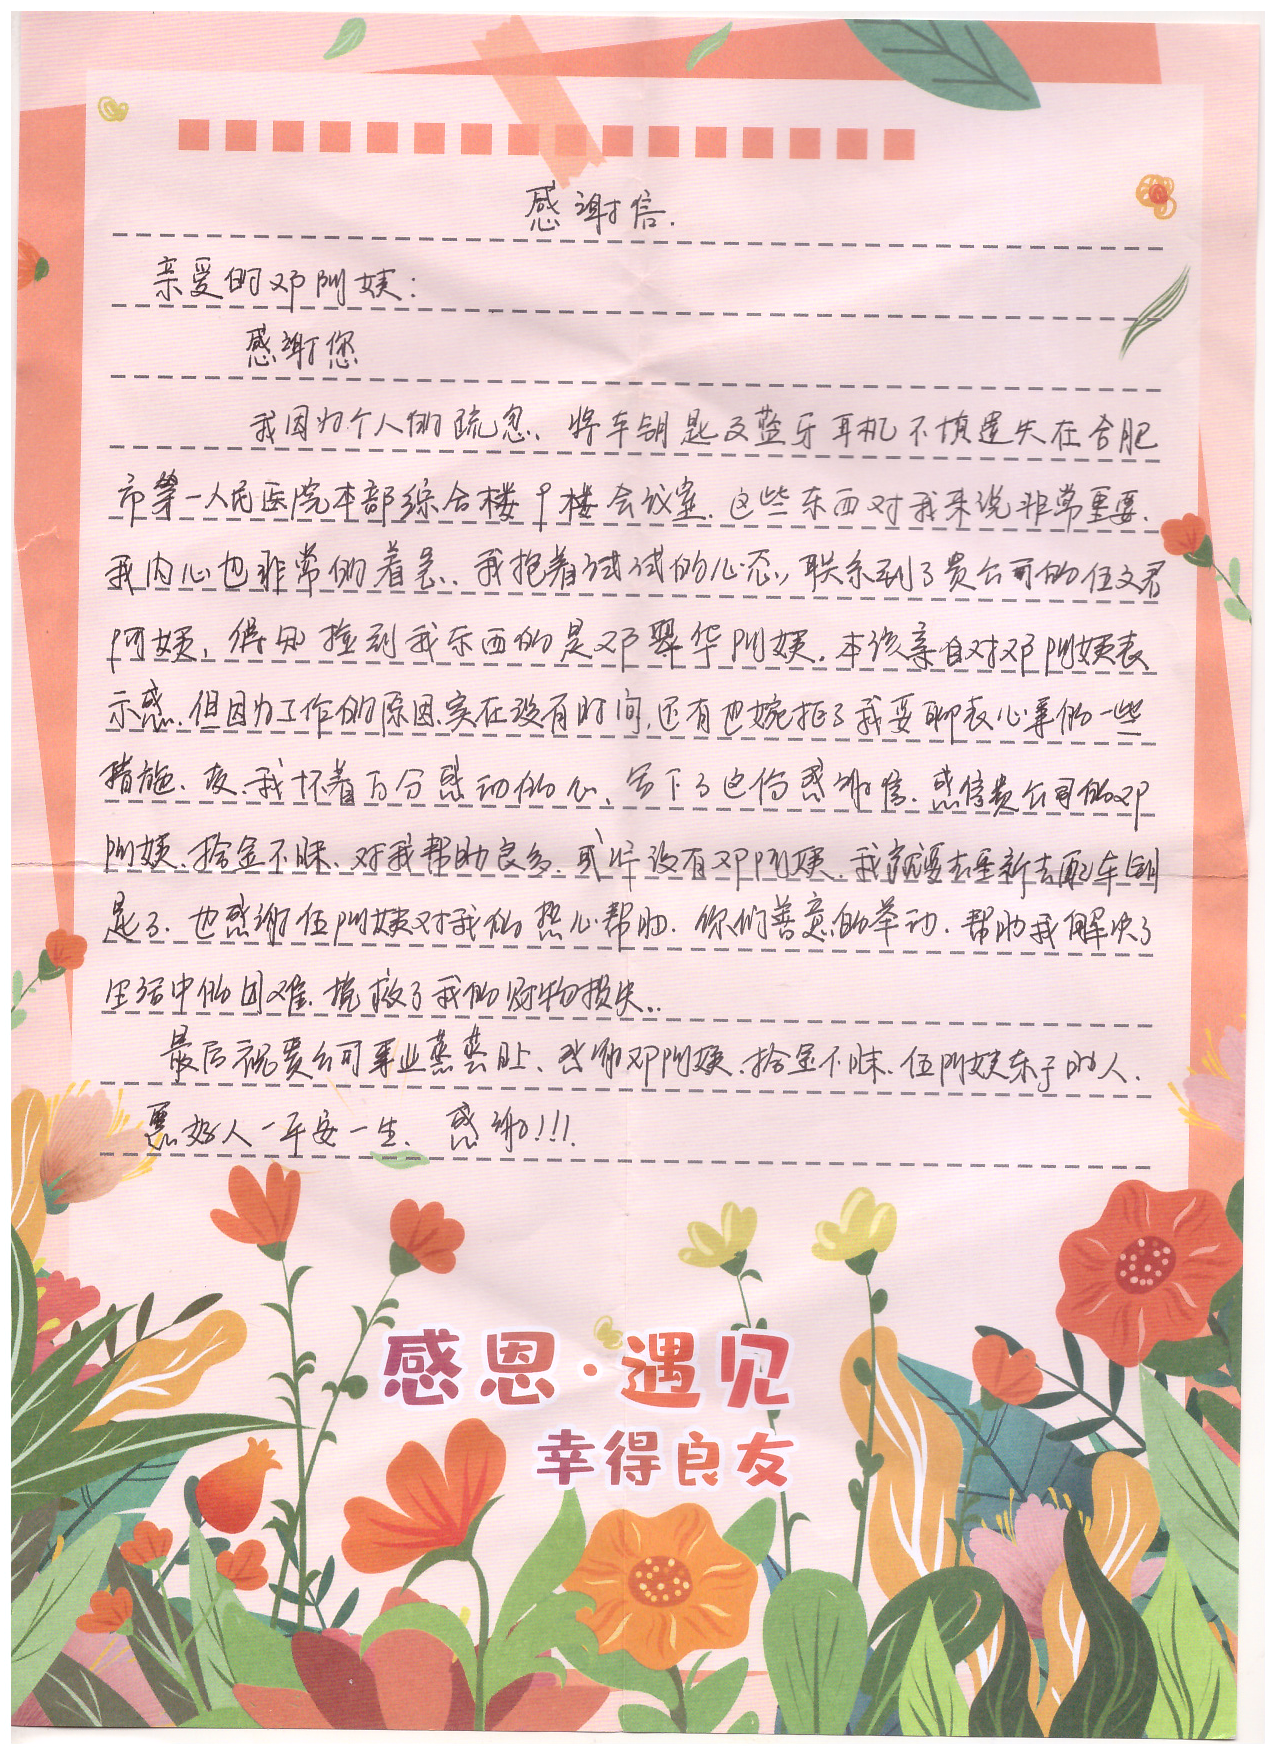 感谢信.
亲爱的邓阿姨:
感谢您
我因为个人的疏忽、将车钥匙及蓝牙耳机不慎遗失在合肥
市第一人民医院本部综合楼9楼会议室.这些东西对我来说非常重要.
我内心也非常的着急.我抱着试试的心态,联系到了贵公司的伍文君
阿姨,得知捡到我东西的是邓翠华阿姨.本该亲自对邓阿姨表
示感.但因为工作的原因.实在没有时间,还有也婉拒了我要聊表心意的一些
措施.故.我怀着万分感动的心、写下了这份感谢信.感谢贵公司的邓
阿姨.拾金不昧、对我帮助良多.或许没有邓阿姨.我就要去重新去配车钥
匙了.也感谢伍阿姨对我的热心帮助.你们善意的举动.帮助我解决了
生活中的困难.挽救了我的财物损失..
最后祝贵公司事业蒸蒸日上、感谢邓阿姨.拾金不昧.伍阿姨乐于助人.
愿好人一平安一生.感谢!!!.
感恩·遇见
幸得良友